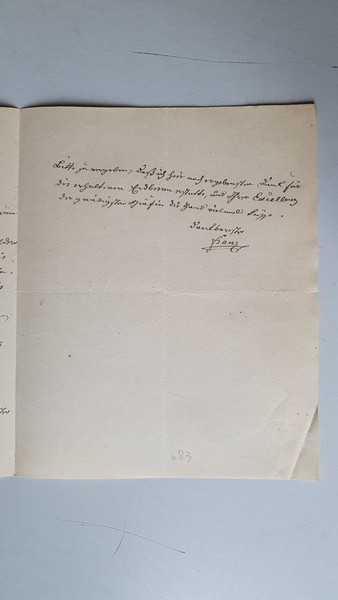 Bitte zu vergeben, daß ich hier noch ergebensten Dank für
die erhaltenen Erdbeeren erstatte, und Ihrer Excellenz
der gnädigsten Gräfin die Hand küsse.
Dankbarster
Franz
683